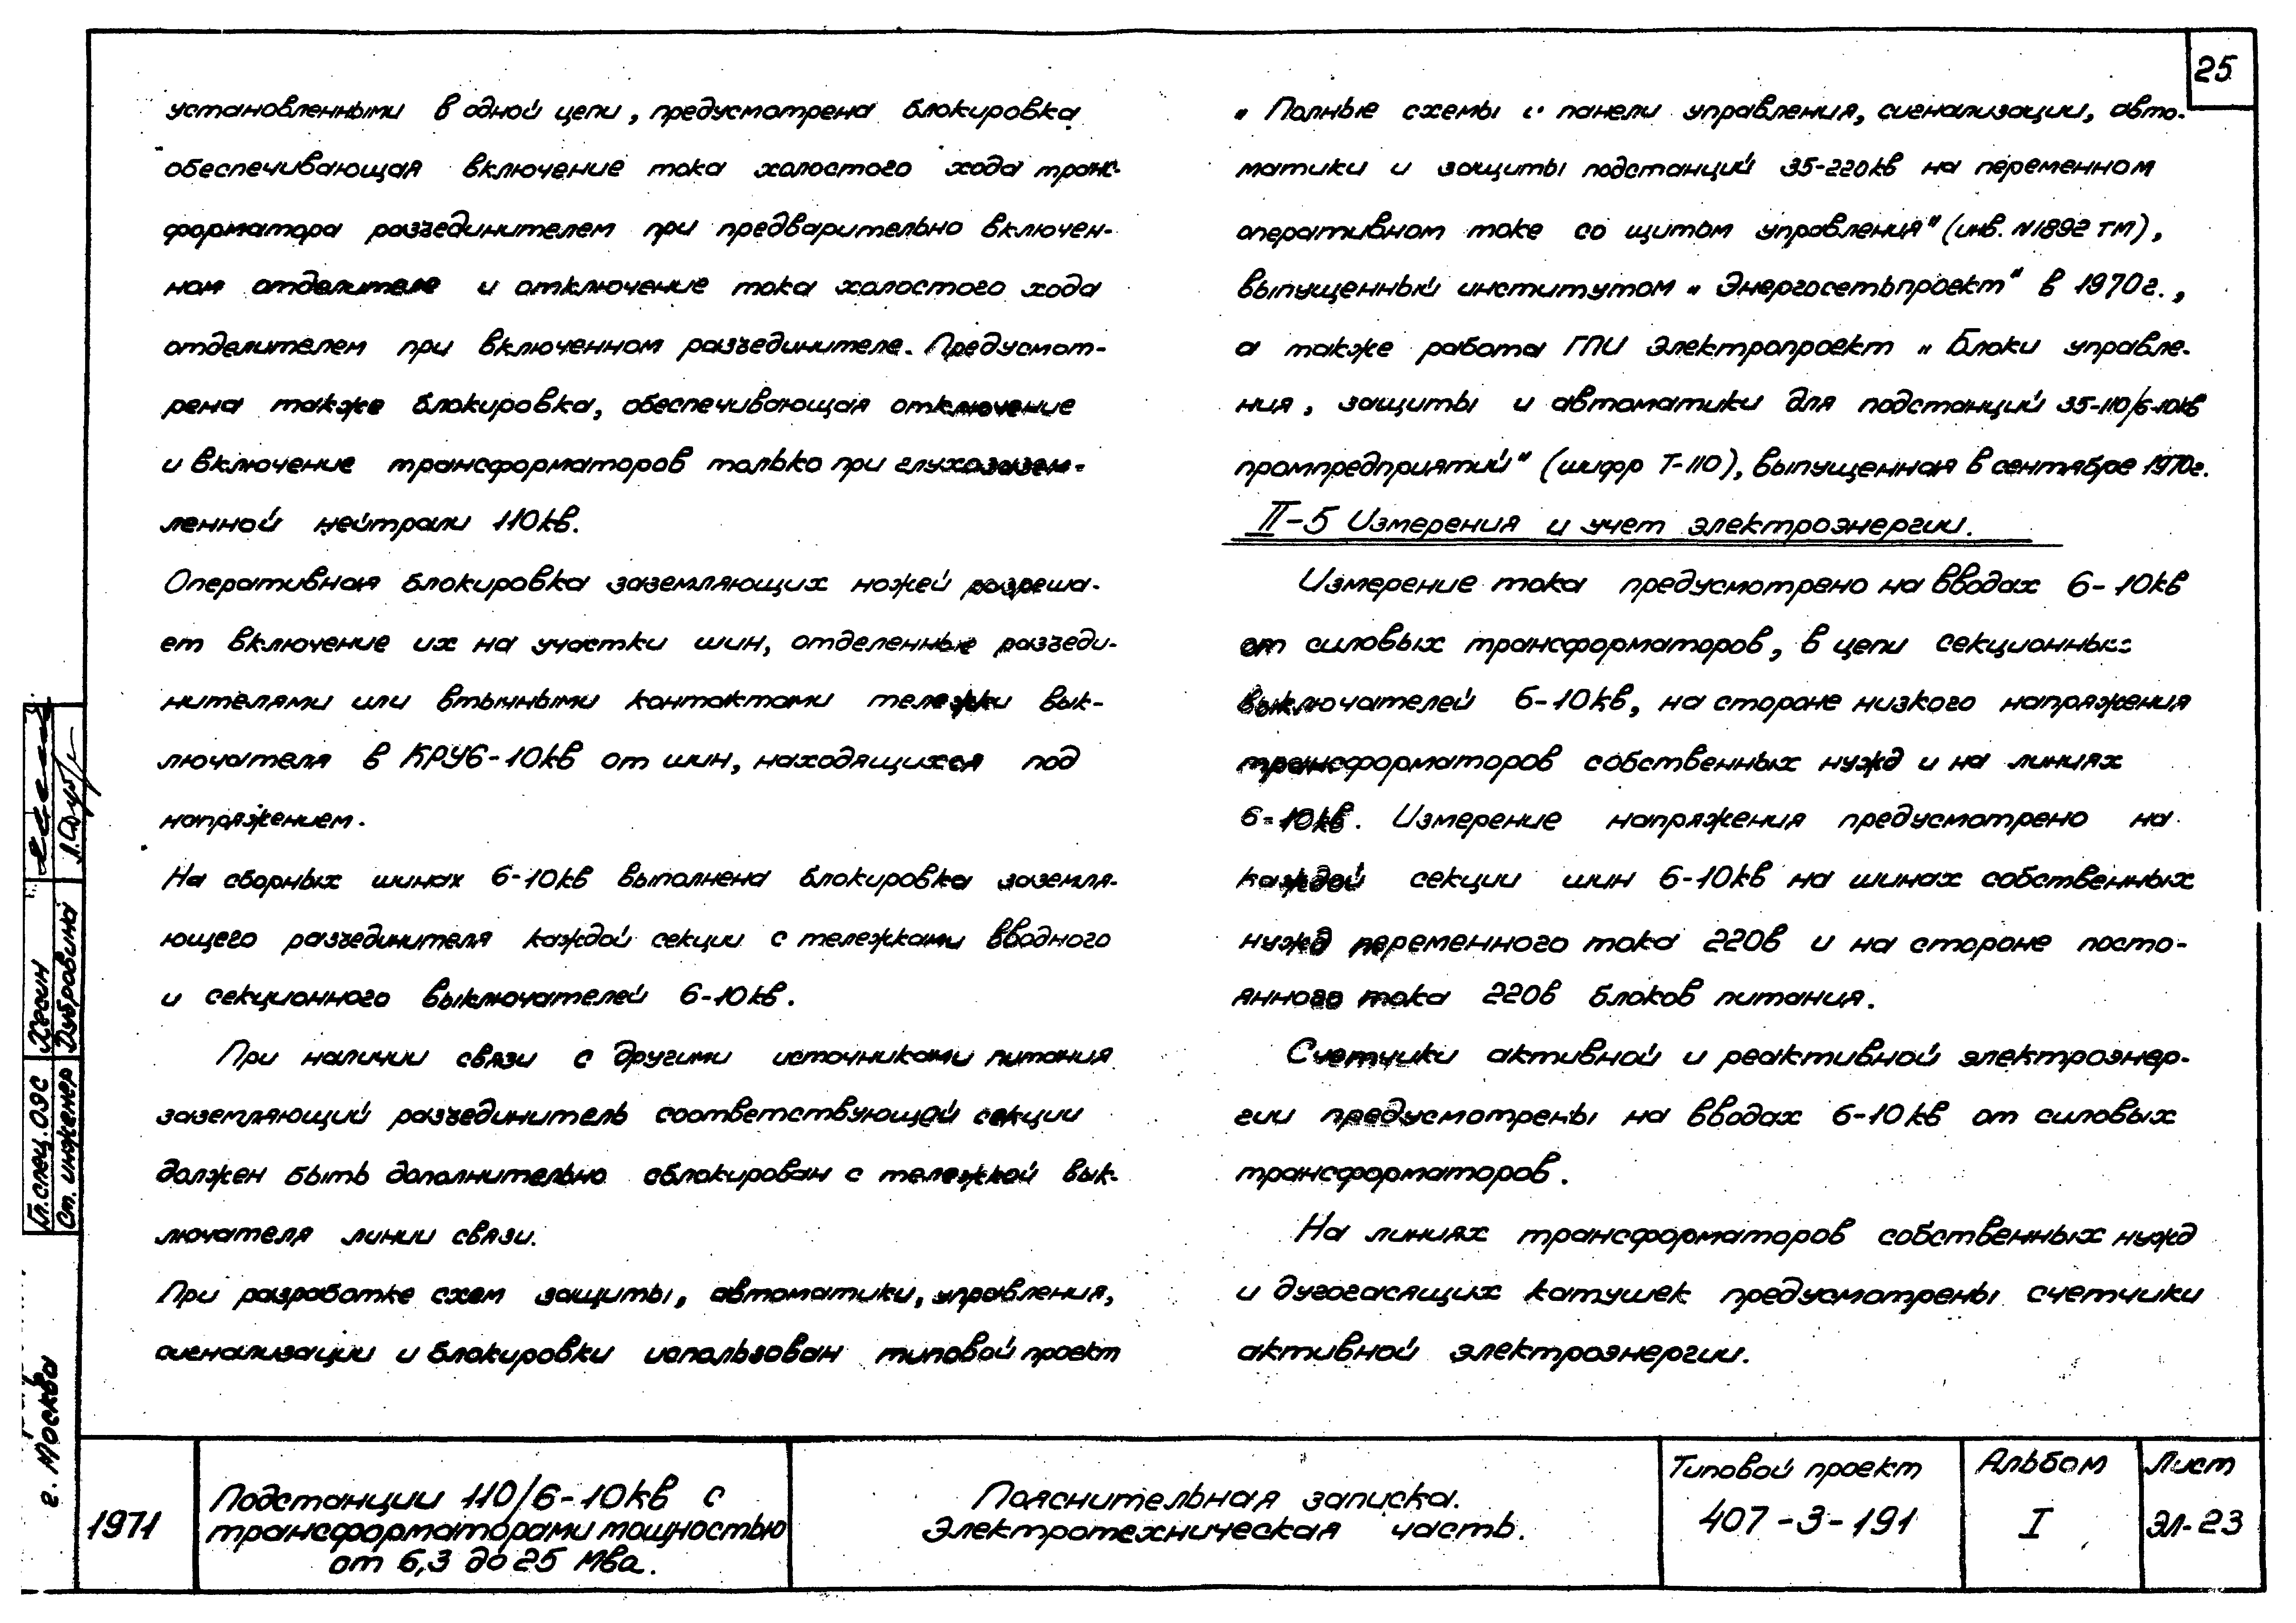 25
установленными в одной цепи, предусмотрена блокировка
обеспечивающая включение тока холостого хода транс-
форматора разъединителем при предварительно включен-
ном отделителе и отключение тока холостого хода
отделителем при включенном разъединителе. Предусмот-
рена также блокировка, обеспечивающая отключение
и включение трансформаторов только при глухозазем-
ленной нейтрали 110кв.
Оперативная блокировка заземляющих ножей разреша-
ет включение их на участки шин, отделенные разъеди-
нителями или втычными контактами тележки вык-
лючателя в КРУ6-10кв от шин, находящихся под
напряжением.
На сборных шинах 6-10кв выполнена блокировка заземля-
ющего разъединителя каждой секции с тележками вводного
и секционного выключателей 6-10кв.
При наличии связи с другими источниками питания
заземляющий разъединитель соответствующей секции
должен быть дополнительно сблокирован с тележкой вык-
лючателя линии связи.
При разработке схем защиты, автоматики, управления,
сигнализации и блокировки использован типовой проект
„Полные схемы и панели управления, сигнализации, авто-
матики и защиты подстанций 35-220кв на переменном
оперативном токе со щитом управления" (инв. N1892 тм),
выпущенный институтом „Энергосетьпроект" в 1970г.,
а также работа ГПИ Электропроект „Блоки управле-
ния, защиты и автоматики для подстанций 35-110/6-10кв
промпредприятий" (шифр Т-110), выпущенная в сентябре 1970г.
II-5 Измерения и учет электроэнергии.
Измерение тока предусмотрено на вводах 6-10кв
от силовых трансформаторов, в цепи секционных
выключателей 6-10кв, на стороне низкого напряжения
трансформаторов собственных нужд и на линиях
6-10кв. Измерение напряжения предусмотрено на
каждой секции шин 6-10кв на шинах собственных
нужд переменного тока 220в и на стороне посто-
янного тока 220в блоков питания.
Счетчики активной и реактивной электроэнер-
гии предусмотрены на вводах 6-10кв от силовых
трансформаторов.
На линиях трансформаторов собственных нужд
и дугогасящих катушек предусмотрены счетчики
активной электроэнергии.
Гл.спец.ОЭС Хесин
Ст. инженер Дубровина
г. Москва
1971
Подстанции 110/6-10кв с
трансформаторами мощностью
от 6,3 до 25 Мва.
Пояснительная записка.
Электротехническая часть.
Типовой проект
407-3-191
Альбом
I
Лист
ЭЛ-23